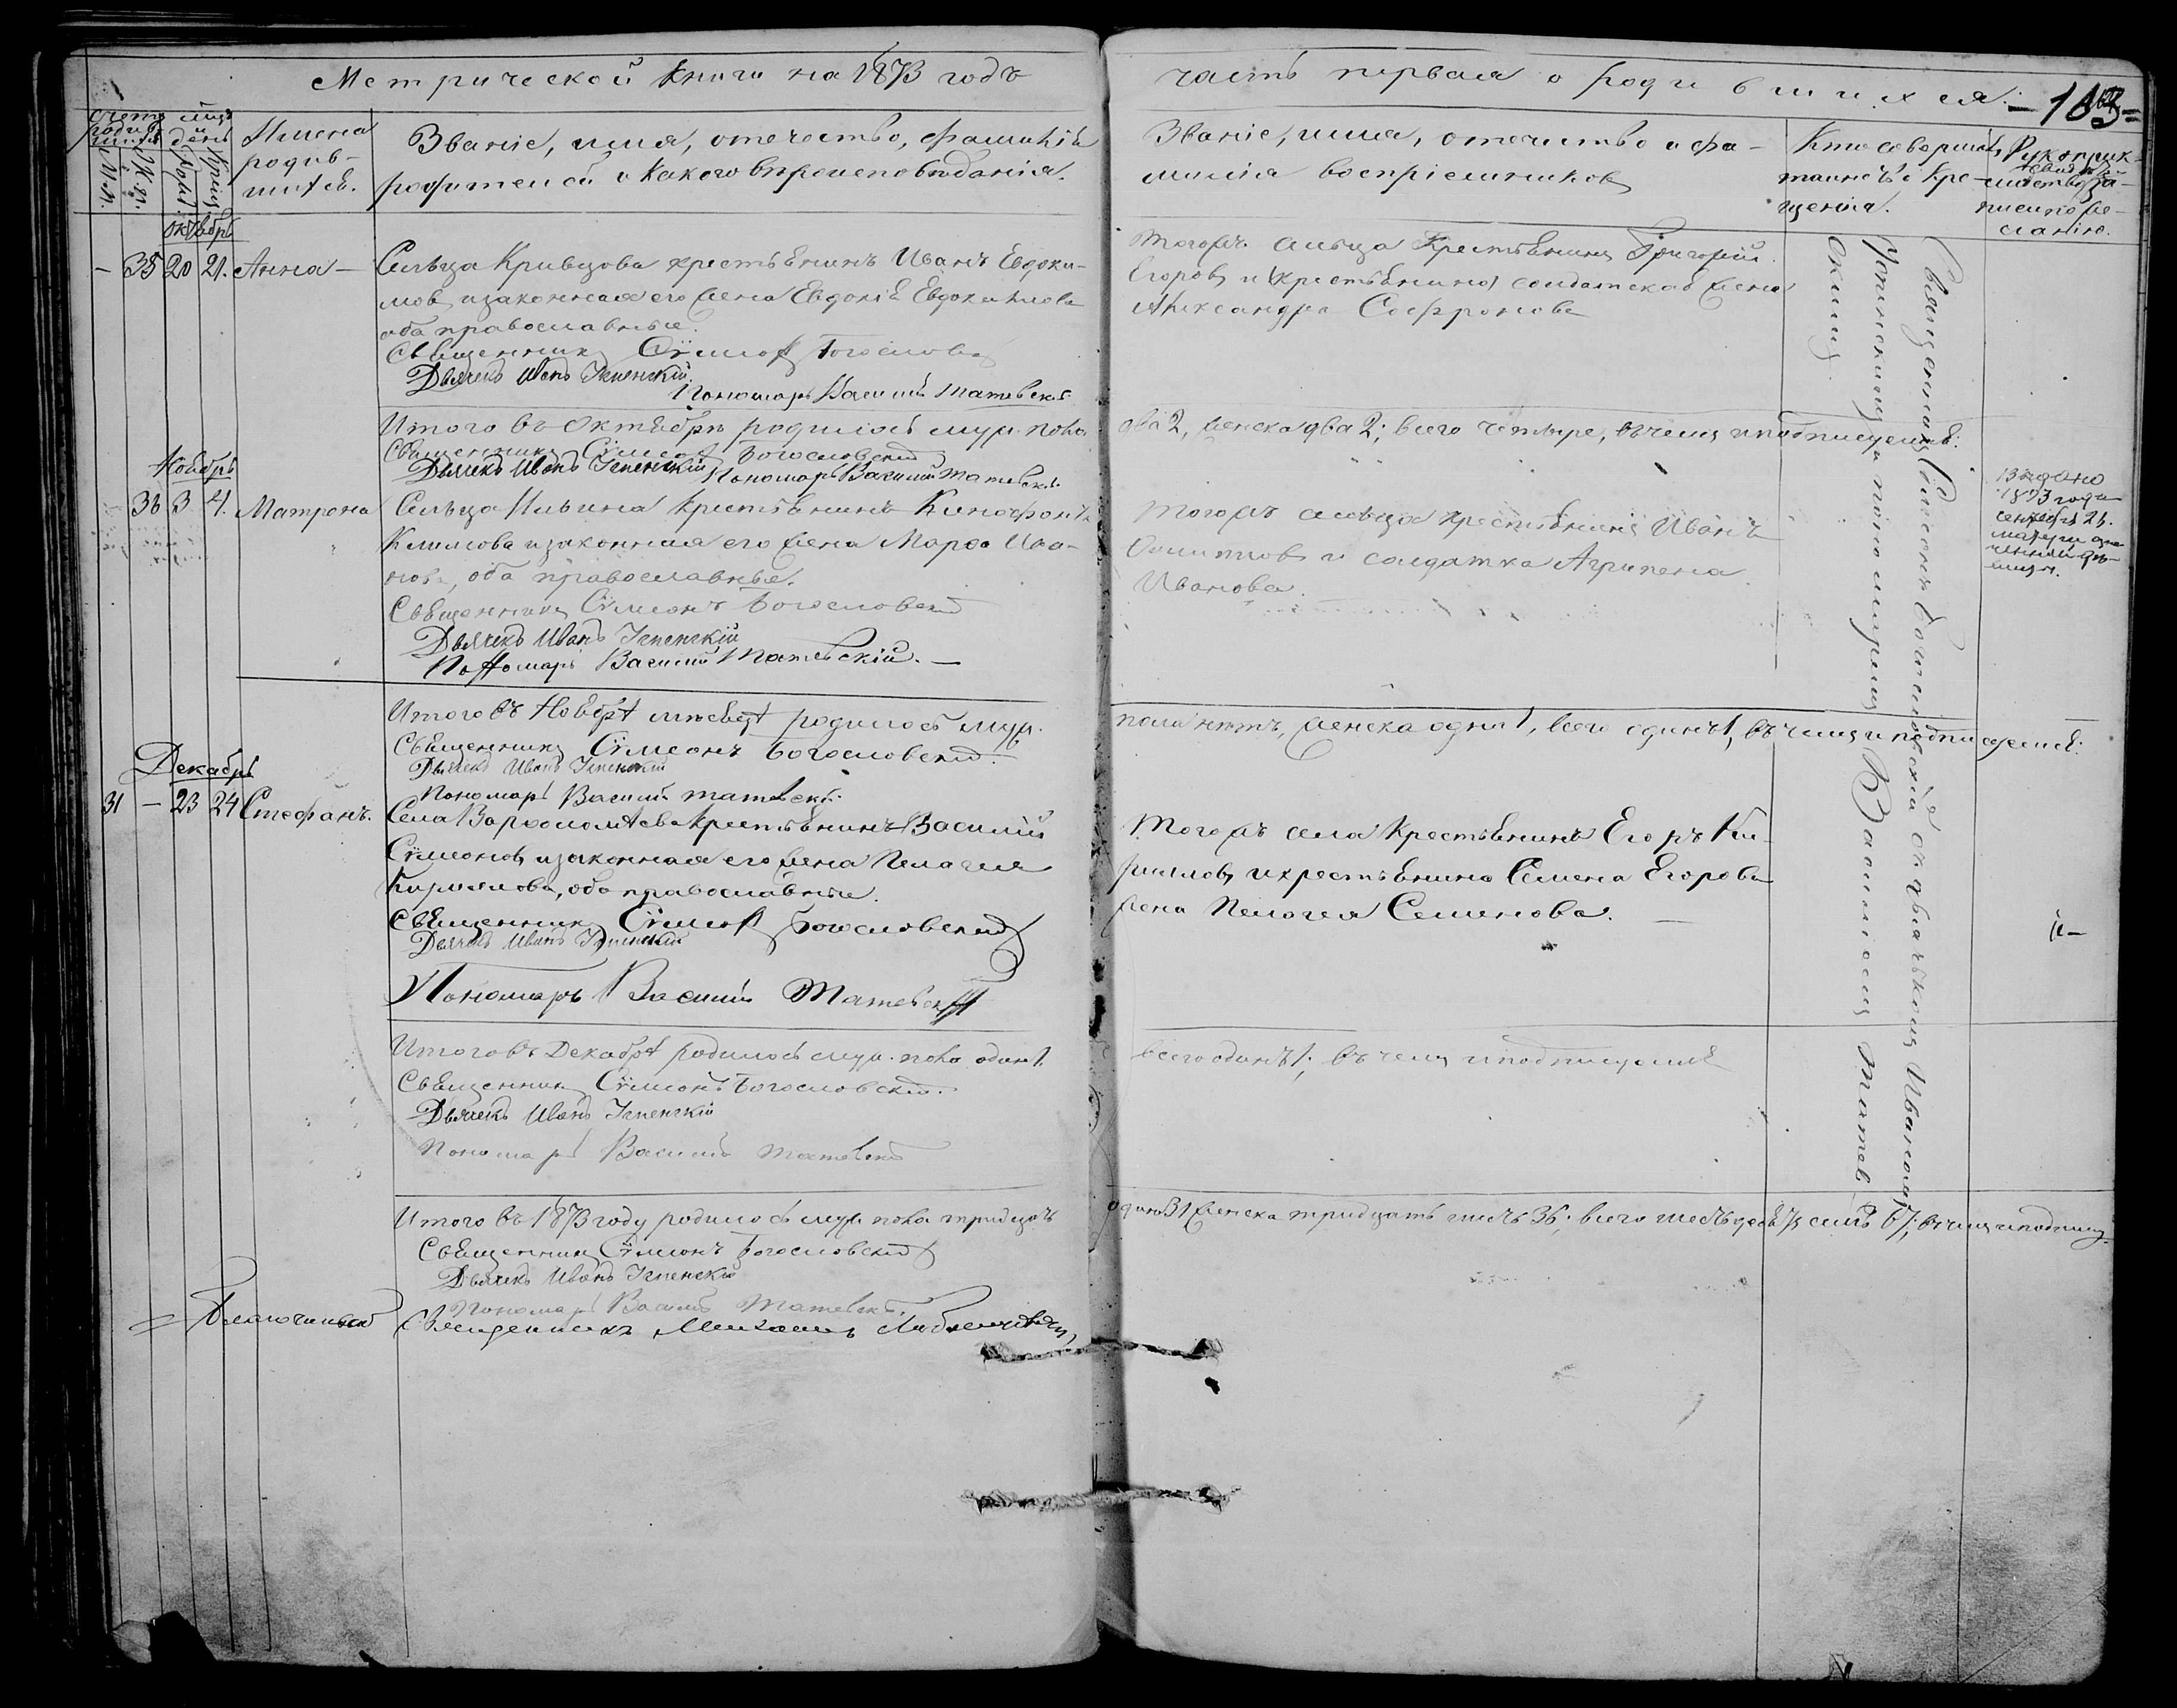 Метрической книги на 1873 годъ
часть первая о родившихся.
Имена
родив-
шихся.
Званіе, имя, отечество, фамилія
родителей и какого вѣроисповѣданія.
Званіе, имя, отечество и фа-
милія воспріемниковъ
Кто совершалъ
таинство кре-
щенія.
Октябрь
– 35 20 21. Анна –
Сельца Кривцова крестьянинъ Иванъ Евдоки-
мовъ и законная его жена Евдокія Евдокимова
оба православные.
Священникъ Сѵмеонъ Богословскій
Дьячекъ Иванъ Успенскій
Пономарь Василій Татевскій
тогожъ сельца крестьянинъ Григорій
Егоровъ и крестьянина солдатская жена
Александра Софронова
Итого въ Октябрѣ родилось муж. пола
два 2, женска два 2; всего четыре, въ чемъ и подписуемся.
Священникъ Сѵмеонъ Богословскій
Дьячекъ Иванъ Успенскій Пономарь Василій Татевскій
Ноябрь
36 3 4. Матрона
Сельца Ильина крестьянинъ
Климова и законная его жена Марѳа Ива-
нова, оба православные.
Священникъ Сѵмеонъ Богословскій
Дьячекъ Иванъ Успенскій
Пономарь Василій Татевскій. –
тогожъ сельца крестьянинъ Иванъ
и солдатка Агрипена
Иванова.
Выдано
года
сентября 21.
Итого въ Ноябрѣ мѣсяцѣ родилось муж.
пола нѣтъ, женска одна 1, всего одинъ 1, въ чемъ и подписуемся.
Священникъ Сѵмеонъ Богословскій.
Дьячекъ Иванъ Успенскій
Пономарь Василій Татевскій.
Декабрь
31 – 23 24 Стефанъ.
Села Варѳоломѣева крестьянинъ Василій
Сѵмеоновъ и законная его жена Пелагея
Кирилова, оба православные.
Священникъ Сѵмеонъ Богословскій
Дьячекъ Иванъ Успенскій
Пономарь Василій Татевскій
Тогожъ села крестьянинъ Егоръ Ки-
рилловъ и крестьянина Семена Егорова
жена Пелогея Семенова. –
Итого въ Декабрѣ родилось муж. пола одинъ 1.
всего одинъ 1; въ чемъ и подписуемся
Священникъ Сѵмеонъ Богословскій.
Дьячекъ Иванъ Успенскій
Пономарь Василій Татевскій
Итого въ 1873 году родилось муж. пола тридцать
одинъ 31 женска тридцать шесть 36. всего шестьдесятъ семь 67; въ чемъ и подпису-
Священникъ Сѵмеонъ Богословскій
Дьячекъ Иванъ Успенскій
Пономарь Василій Татевскій.
Благочинный Священникъ Михаилъ
Священникъ Сѵмеонъ Богословскій съ дьячькомъ Иваномъ
Успенскимъ и пономаремъ Василіемъ Татев-
скимъ